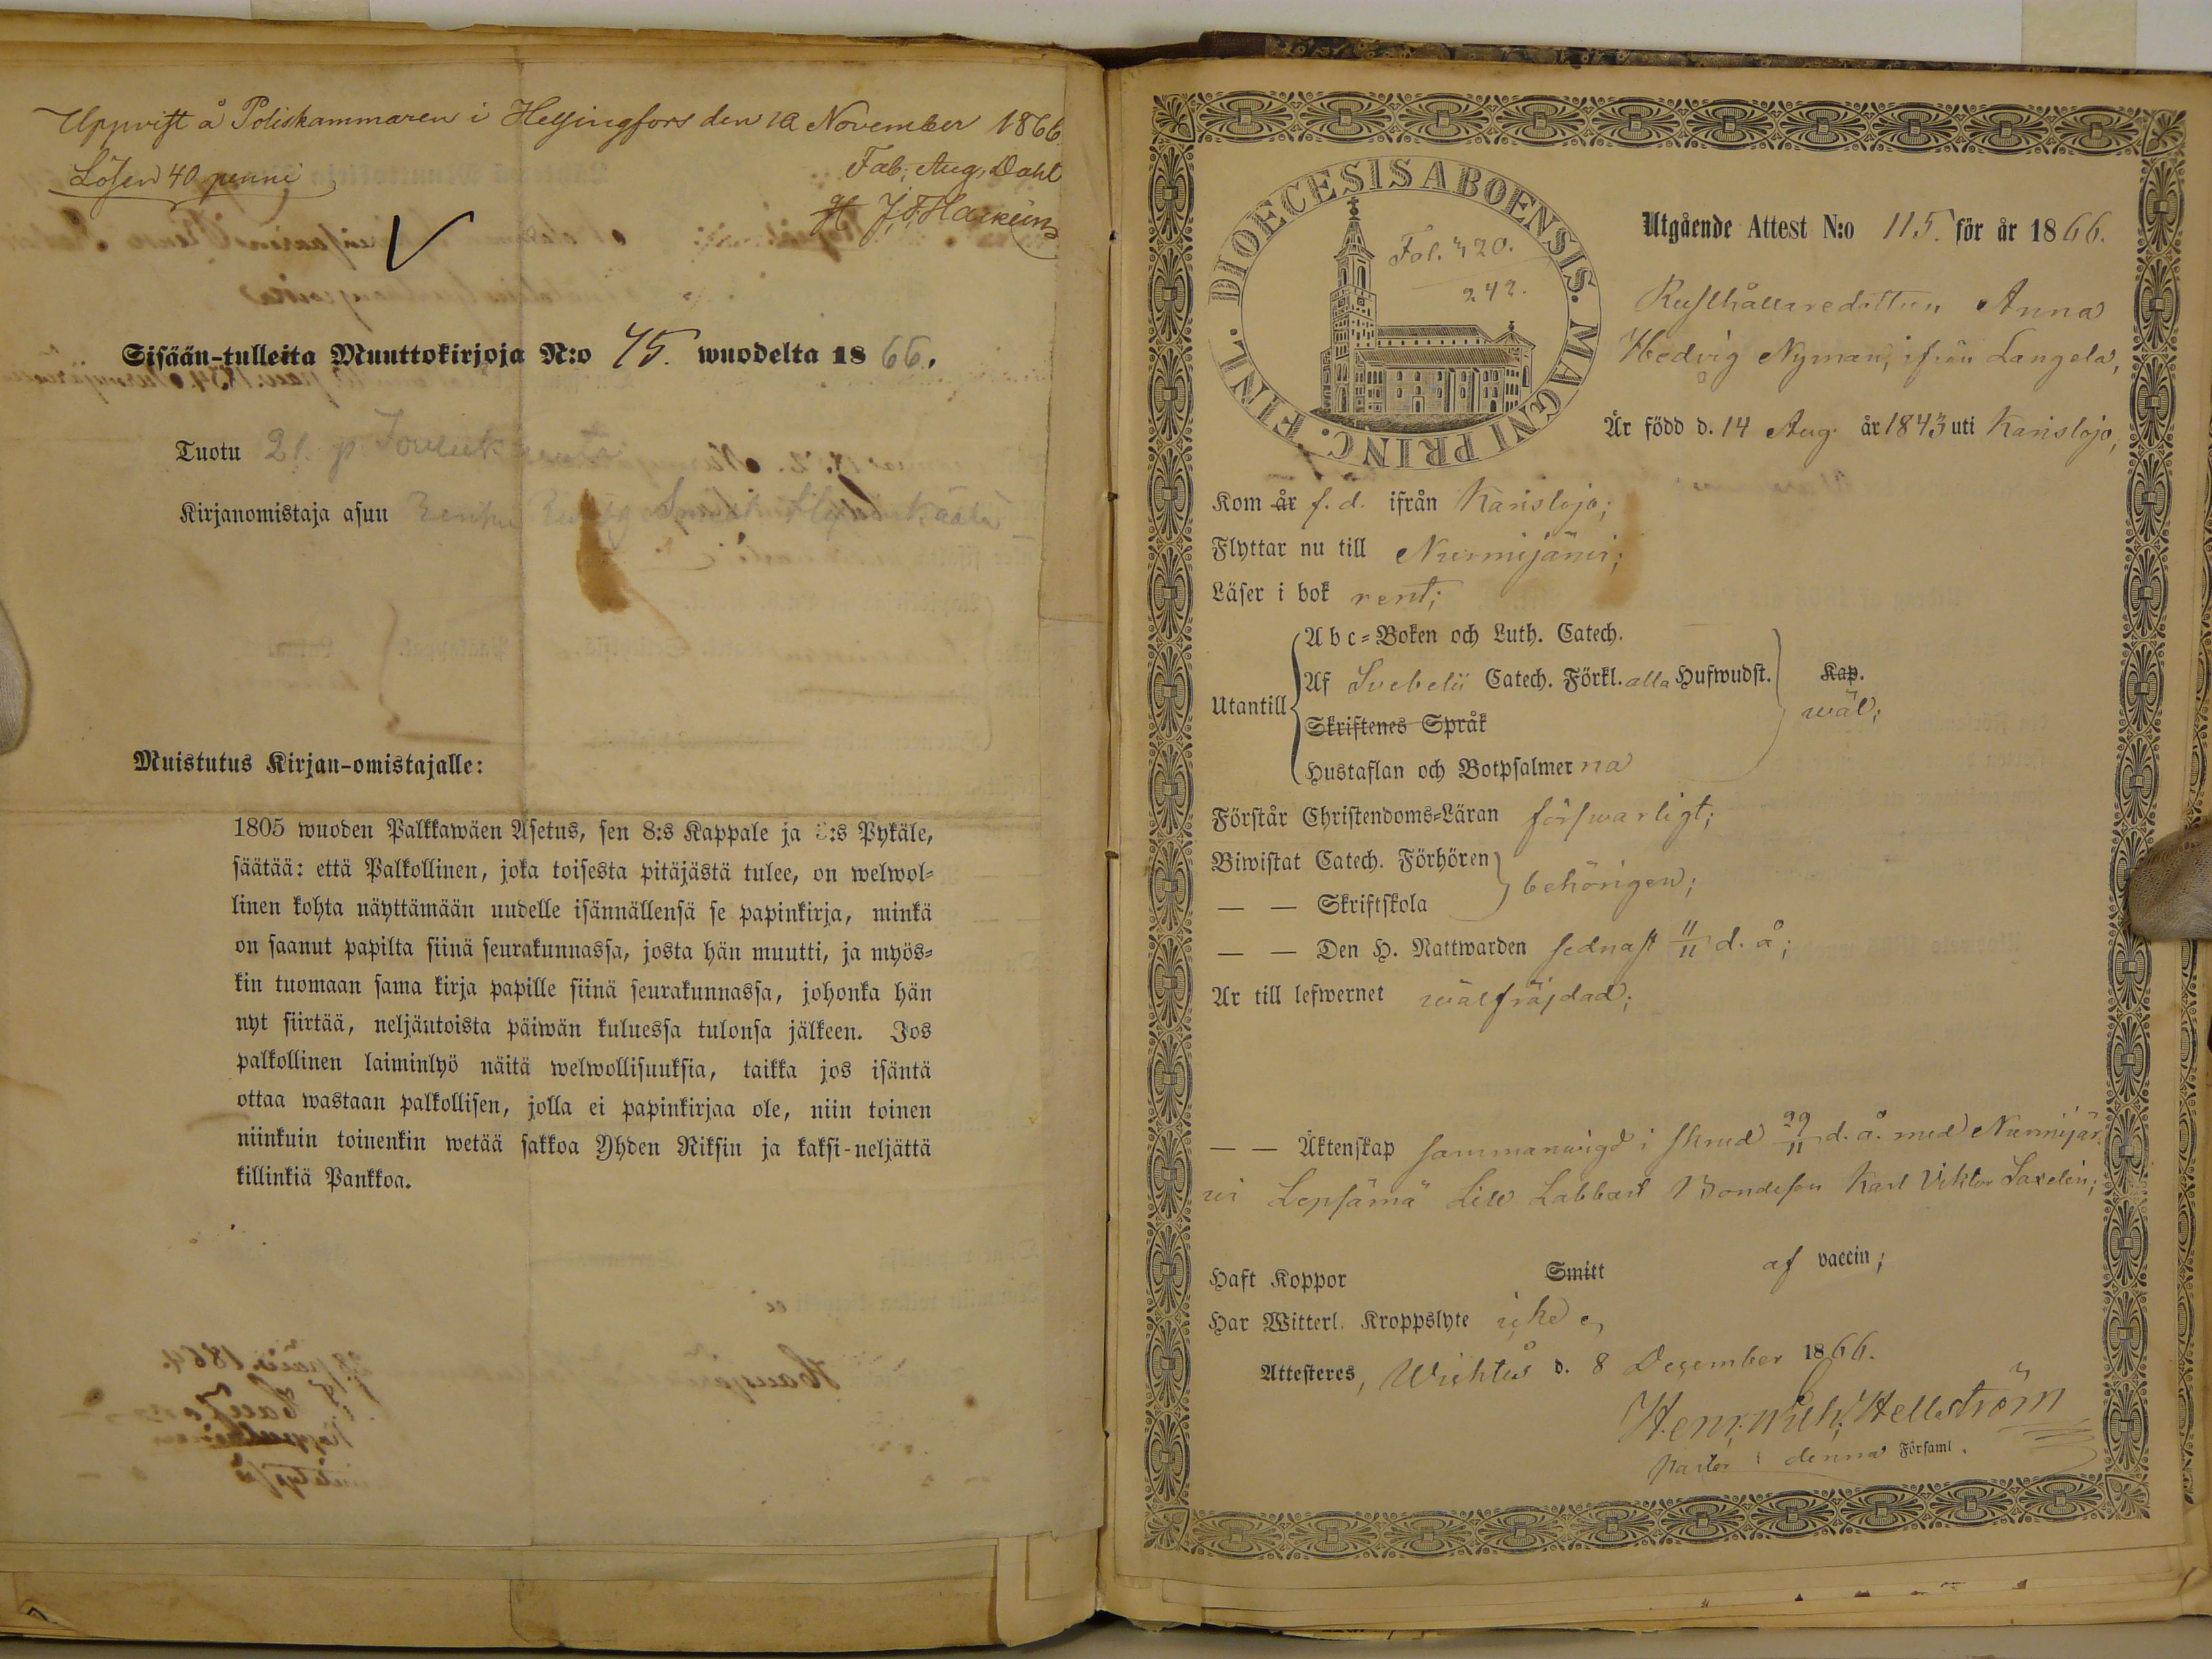 Uppvist å Poliskammaren i Helsingfors den 12 November 1866.
Lösen 40 penni
Fab. Aug. Dahl
Sisään-tulleita Muuttokirjoja N:o 75. wuodelta 1866.
Tuotu 21. p. Joulukuuta
Kirjanomistaja asuu
Muistutus Kirjan-omistajalle:
1805 wuoden Palkkawäen Asetus, sen 8:s Kappale ja :s Pykäle,
säätää: että Palkollinen, joka toisesta pitäjästä tulee, on welwol-
linen kohta näyttämään uudelle isännällensä se papinkirja, minkä
on saanut papilta siinä seurakunnassa, josta hän muutti, ja myös-
kin tuomaan sama kirja papille siinä seurakunnassa, johonka hän
nyt siirtää, neljäntoista päiwän kuluessa tulonsa jälkeen. Jos
palkollinen laiminlyö näitä welwollisuuksia, taikka jos isäntä
ottaa wastaan palkollisen, jolla ei papinkirjaa ole, niin toinen
niinkuin toinenkin wetää sakkoa Yhden Riksin ja kaksi-neljättä
killinkiä Pankkoa.
DIOECESIS ABOENSIS. MAGNI PRINC. FINL.
Fol. 420.
242.
Utgående Attest N:o 115. för år 1866.
Rusthållaredottren Anna
Hedvig Nyman, ifrån Langela,
Är född d. 14 Aug. år 1843 uti Karislojo,
Kom år f. d. ifrån Karislojo;
Flyttar nu till Nurmijärvi;
Läser i bok rent;
Utantill
Abc-Boken och Luth. Catech.
Af Svebelii Catech. Förkl. alla Hufwudst. Kap.
wäl;
Skriftenes Språk
Hustaflan och Botpsalmerna
Förstår Christendoms-Läran förswarligt;
Biwistat Catech. Förhören
behörigen;
— — Skriftskola
— — Den H. Nattwarden sednast 11/11 d. å;
Är till lefwernet wälfräjdad;
— — Äktenskap sammanvigd i skrud 29/11 d. å. med Nurmijär-
wi Lepsämä Lill Labbart Bondeson Karl Viktor Saxelin;
Haft Koppor Smitt af vaccin;
Har Witterl. Kroppslyte icke
Attesteres, Wichtis d. 8 December 1866.
Henr. Wilh. Hellström
Pastor i denna Församl.